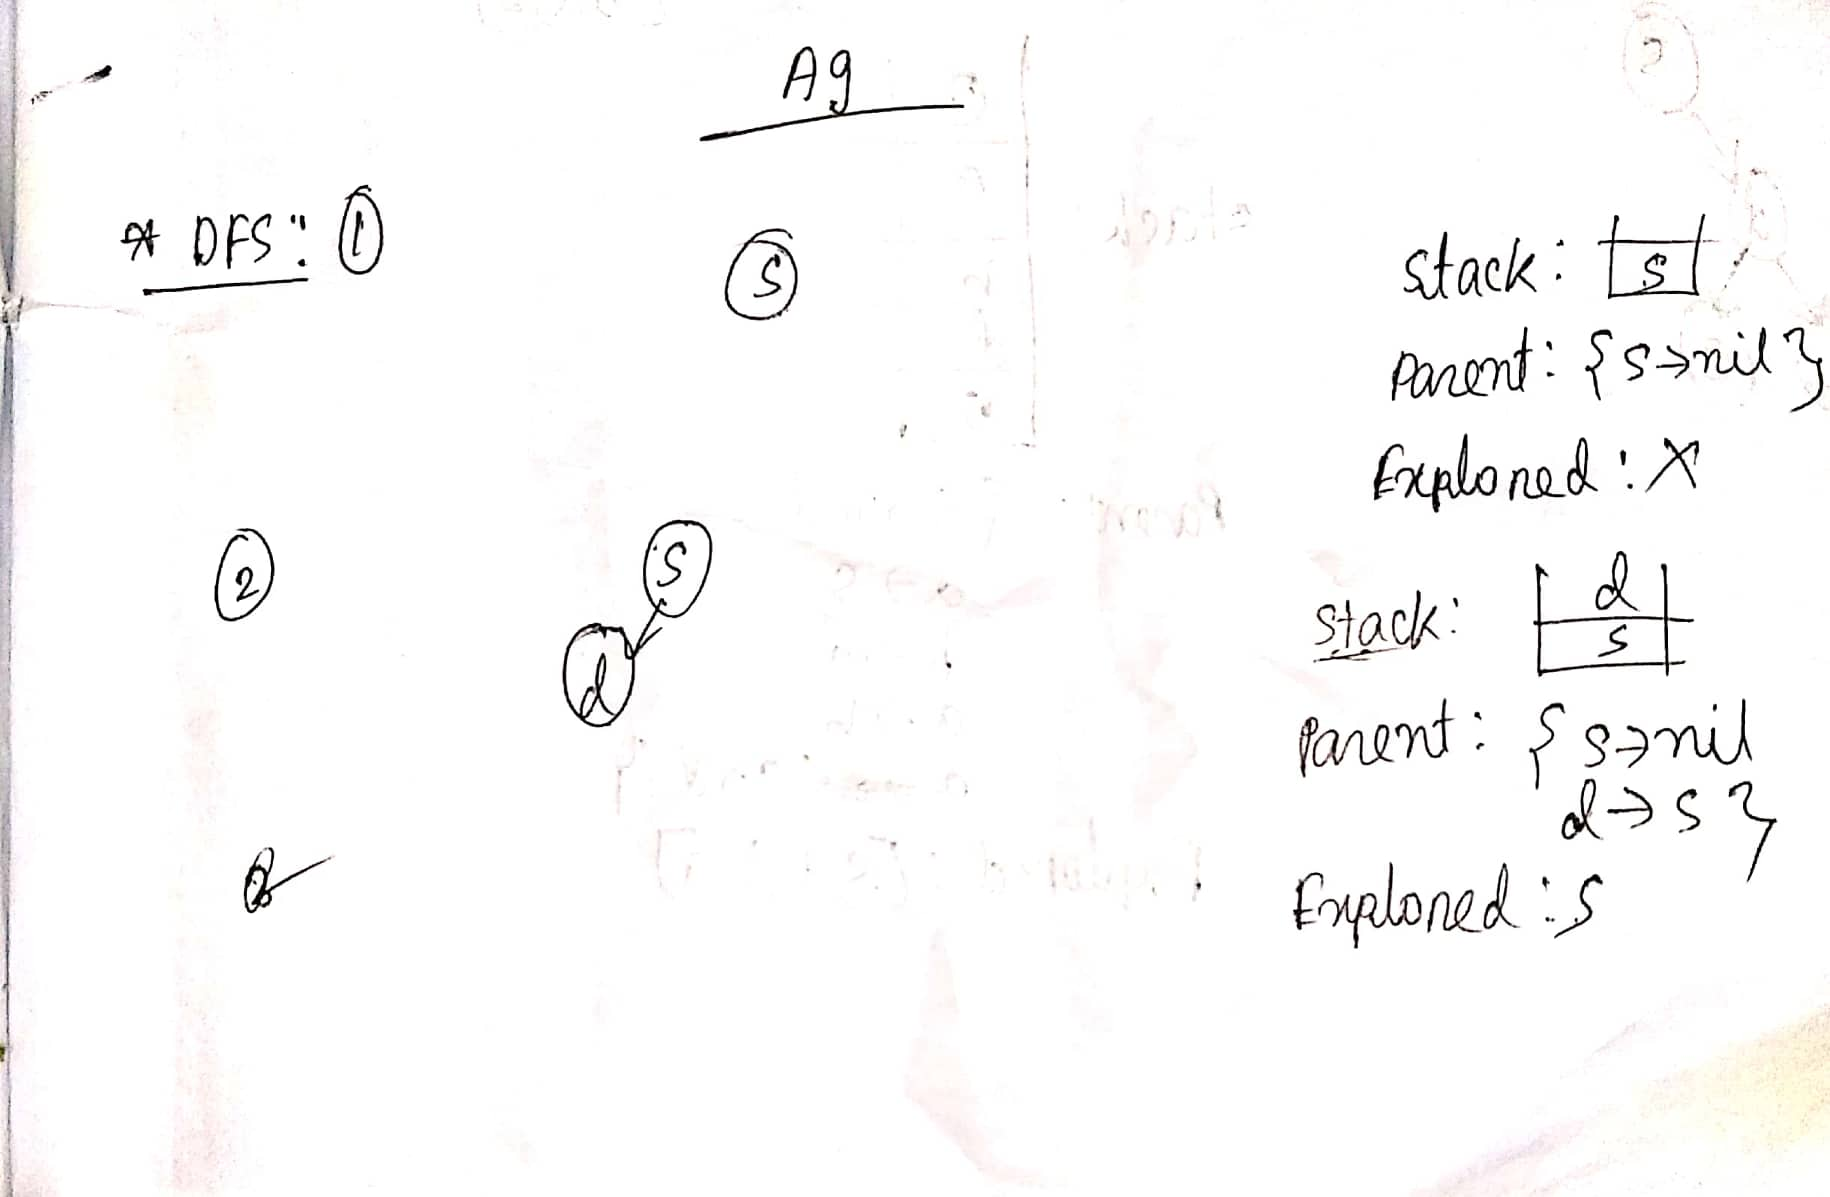 Ag
* DFS: ①
S
stack: s
Parent: {s→nil}
Explored: X
②
S
d
Stack: d
s
Parent: {s→nil
d→s}
Explored: s